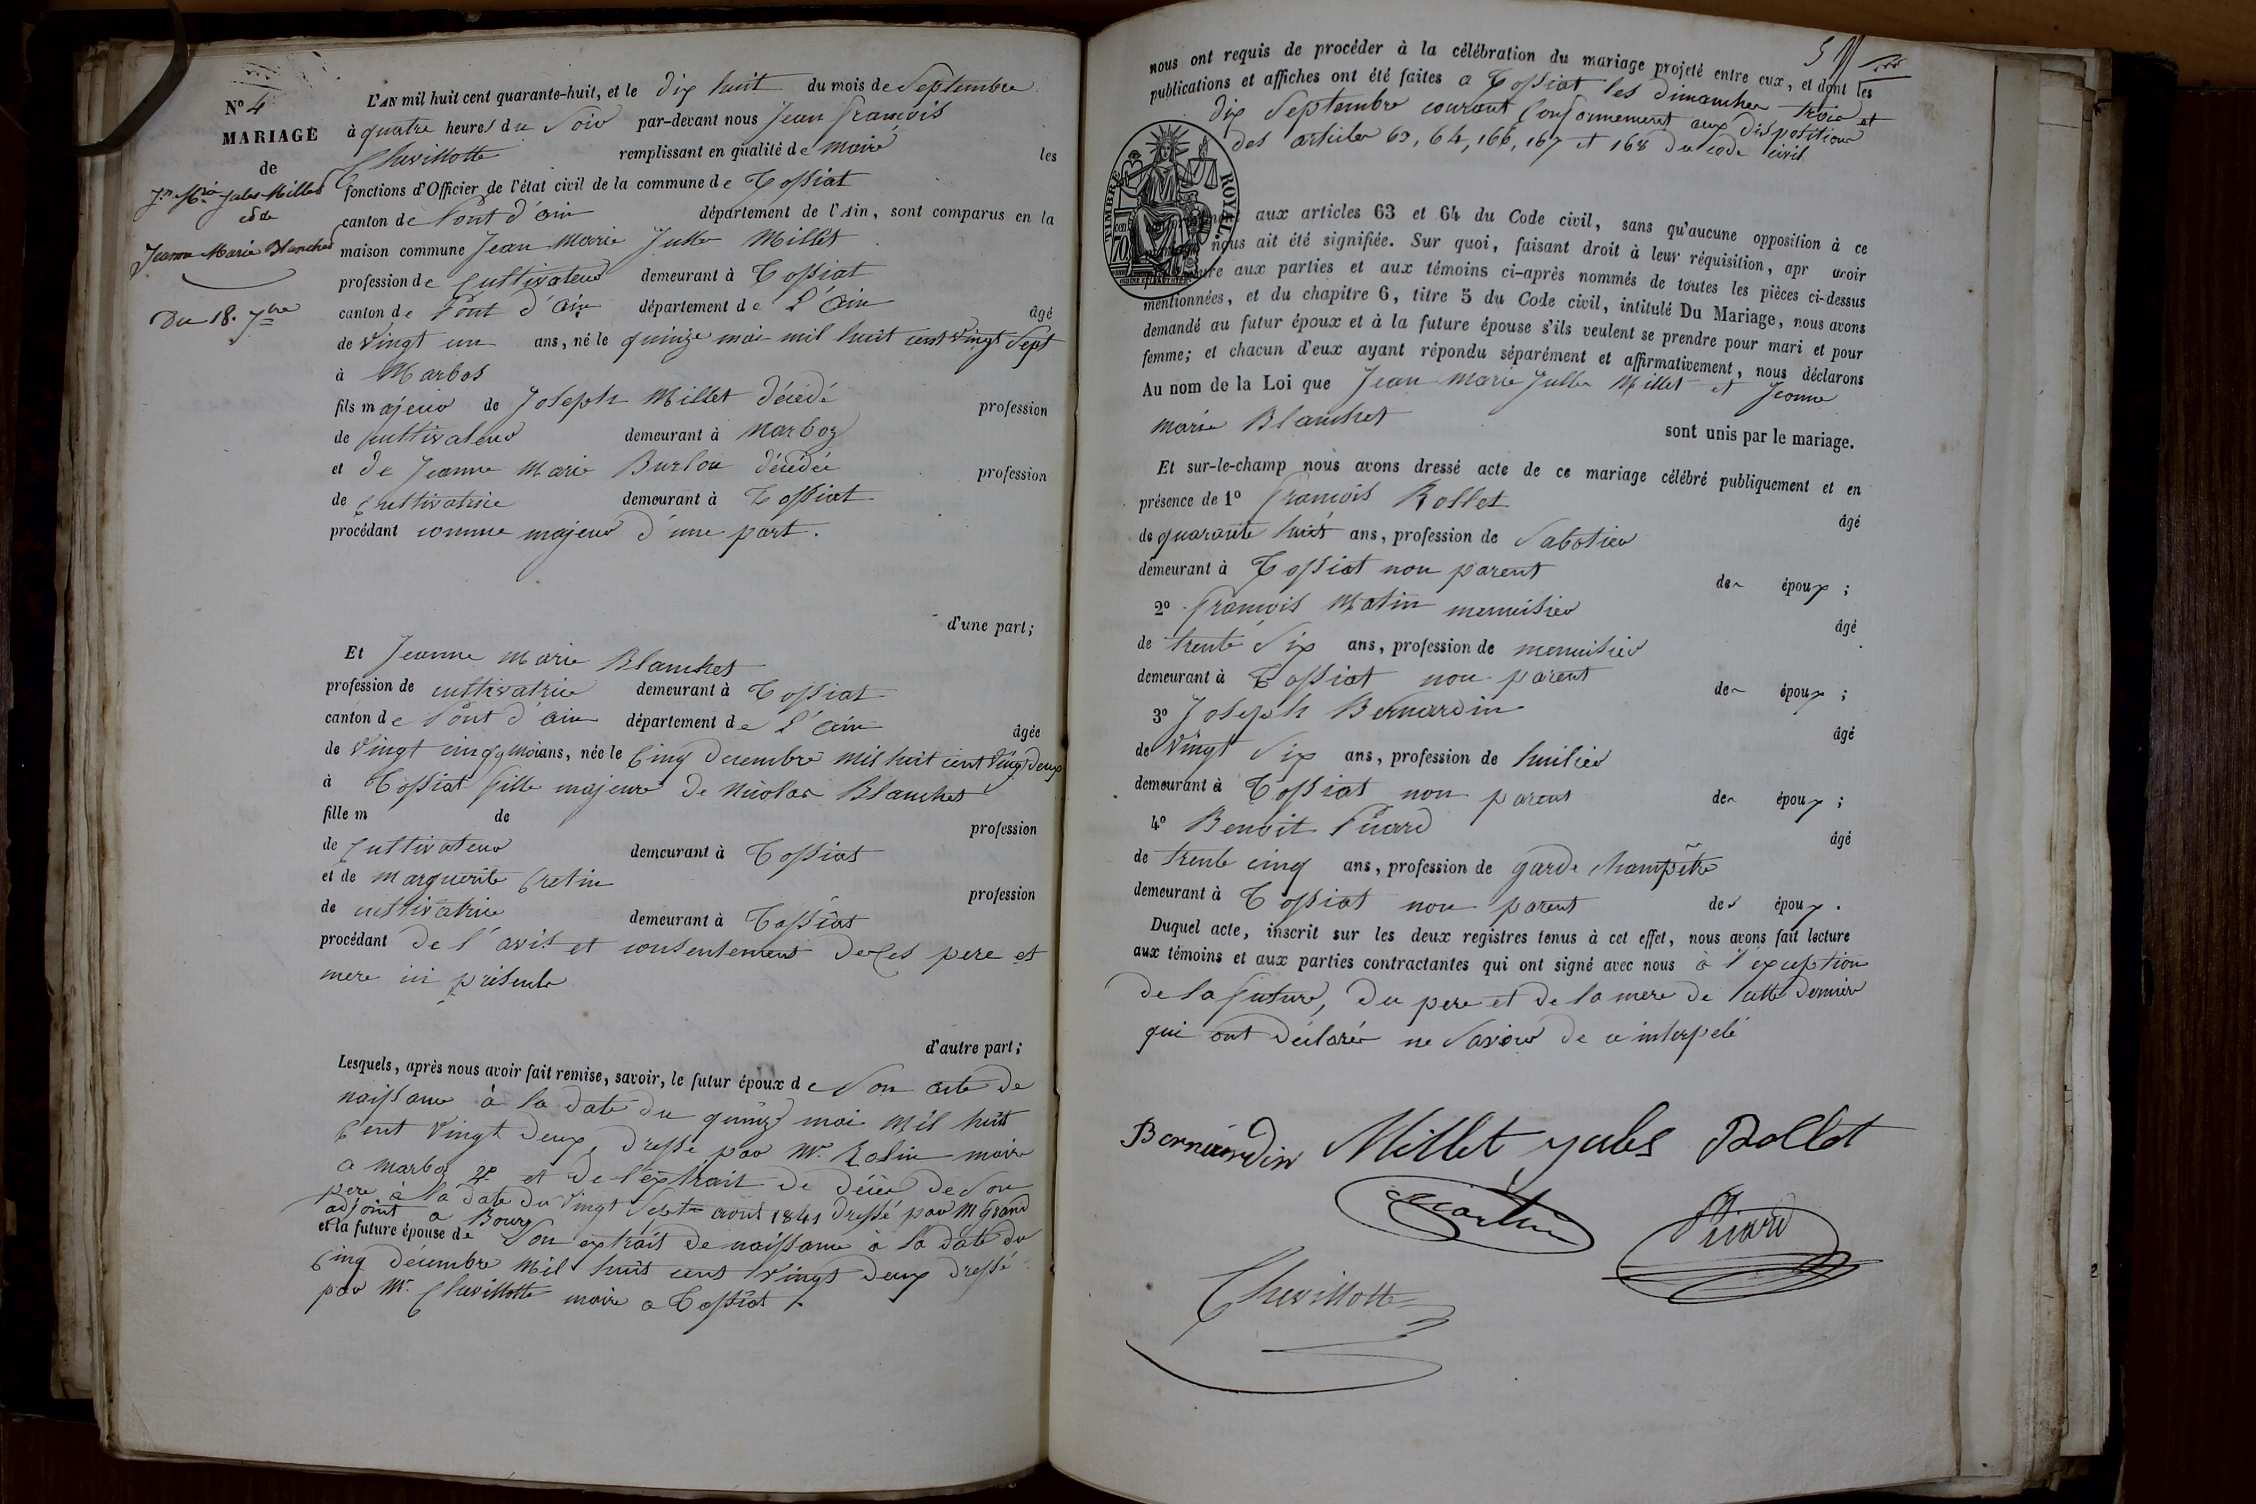 N° 4
MARIAGE
de
Jn Mie Jules Millet
et de
Jeanne Marie Blanchet
Du 18. 7bre
L'AN mil huit cent quarante-huit, et le dix huit du mois de Septembre
à quatre heures du Soir par-devant nous Jean François
Chevillotte remplissant en qualité de maire les
fonctions d'Officier de l'état civil de la commune de Tossiat
canton de Pont d'ain département de l'Ain, sont comparus en la
maison commune Jean Marie Jules Millet
profession de Cultivateur demeurant à Tossiat
canton de Pont d'ain département de L'Ain âgé
de vingt un ans, né le quinze mai mil huit cent vingt Sept
à Marbos
fils majeur de Joseph Millet décédé profession
de Cultivateur demeurant à Marboz
et de Jeanne Marie Burlon décédée profession
de Cultivatrice demeurant à Tossiat
procédant comme majeur d'une part.
d'une part;
Et Jeanne Marie Blanchet
profession de cultivatrice demeurant à Tossiat
canton de Pont d'ain département de l'ain âgée
de vingt cinq ans, née le Cinq decembre mil huit cent vingt deux
à Tossiat fille majeure de Nicolas Blanchet
fille m de profession
de Cultivateur demeurant à Tossiat
et de Marguerite Cretin profession
de cultivatrice demeurant à Tossiat
procédant de l'avis et consentement de Ses pere et
mere ici présents
d'autre part;
Lesquels, après nous avoir fait remise, savoir, le futur époux de Son acte de
naissance à la date du quinze mai mil huit
Cent vingt deux, dressé par Mr. Robin maire
a marboz 2° et de l'extrait de décès de Son
pere à la date du vingt Sept août 1841 dressé par M Grand
adjoint a Bourg
et la future épouse de Son extrait de naissance à la date du
Cinq décembre mil huit cent vingt deux dressé
par Mr. Chevillotte maire a Tossiat
nous ont requis de procéder à la célébration du mariage projeté entre eux, et dont les
publications et affiches ont été faites a Tossiat les dimanches trois et
dix Septembre courant Conformement aux dispositions
des articles 63, 64, 166, 167 et 168 du code civil
TIMBRE ROYAL
70
aux articles 63 et 64 du Code civil, sans qu'aucune opposition à ce
nous ait été signifiée. Sur quoi, faisant droit à leur réquisition, apr avoir
aux parties et aux témoins ci-après nommés de toutes les pièces ci-dessus
mentionnées, et du chapitre 6, titre 5 du Code civil, intitulé Du Mariage, nous avons
demandé au futur époux et à la future épouse s'ils veulent se prendre pour mari et pour
femme; et chacun d'eux ayant répondu séparément et affirmativement, nous déclarons
Au nom de la Loi que Jean Marie Jules Millet et Jeanne
Marie Blanchet sont unis par le mariage.
Et sur-le-champ nous avons dressé acte de ce mariage célébré publiquement et en
présence de 1° François Rollet âgé
de quarante huit ans, profession de Sabotier
demeurant à Tossiat non parent des époux;
2° François Matin menuisier âgé
de trente Six ans, profession de menuisier
demeurant à Tossiat non parent des époux;
3° Joseph Bernardin âgé
de vingt Six ans, profession de huilier
demeurant à Tossiat non parent des époux;
4° Benoit Picard âgé
de trente cinq ans, profession de garde champêtre
demeurant à Tossiat non parent des époux.
Duquel acte, inscrit sur les deux registres tenus à cet effet, nous avons fait lecture
aux témoins et aux parties contractantes qui ont signé avec nous à l'exception
de la future, du pere et de la mere de Cette derniere
qui ont déclarés ne Savoir de ce interpelé
Bernardin Millet jules Rollet
Picard
Chevillotte